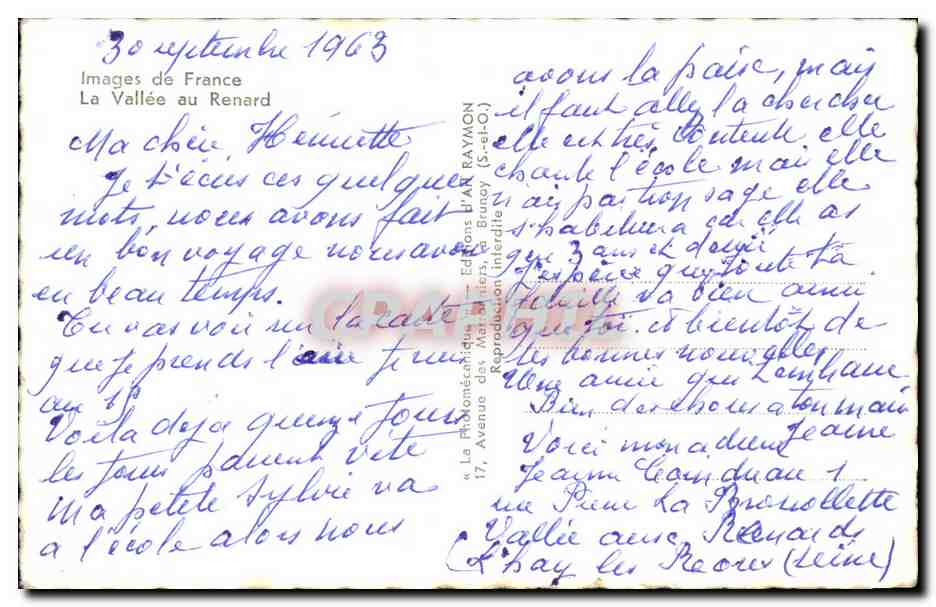 30 septembre 1963
Images de France
La Vallée au Renard
Ma chère Henriette
Je t'écris ces quelques
mots, nous avons fait
un bon voyage nous avons
eu beau temps.
Tu vas voir sur la carte
que je prends l'air je suis
au
Voila deja quinze jours
les jours passent vite
Ma petite Sylvie va
a l'école alors nous
« La Photomécanique » — Editions d'Art RAYMON
17, Avenue des Marronniers, à Brunoy (S.-et-O.)
Reproduction interdite
avons la paix, mais
il faut aller la chercher
elle est très contente elle
chante l'école mais elle
n'ai pas tion sage elle
s'habituera car elle as
que 3 ans et demi
J'espère que toute ta
famille va bien ainsi
que toi. et bientôt de
tes bonnes nouvelles
Une amie qui t'embrasse
Bien des choses a ton mari
Jeanne
Voici mon adresse
Jeanne 1
rue Pierre La Brossollette
Vallée aux Renards
L'hay les Roses (Seine)